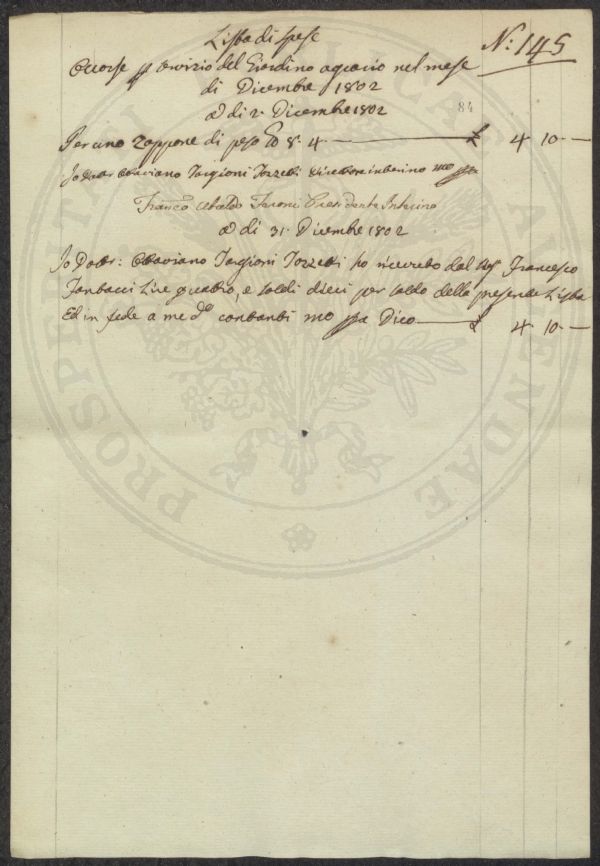 N: 145
Lista di spese
Occorse p servizio del Giardino agrario nel mese
di Dicembre 1802
A di 2. Dicembre 1802
84
Per uno Zappone di peso 8. 4. — £ 4 10 —
Io Dottr Ottaviano Targioni Tozzetti Direttore interino mo ppa
Franco Ubaldo Feroni Presidente Interino
A di 31. Dicembre 1802
Io Dottr: Ottaviano Targioni Tozzetti ho ricevuto dal Sigr Francesco
Lire quattro, e soldi dieci per saldo della presente Lista
Ed in fede a me do contanti mo ppa Dico — £ 4. 10. —
PROSPERITATI PUBLICAE AUGENDAE